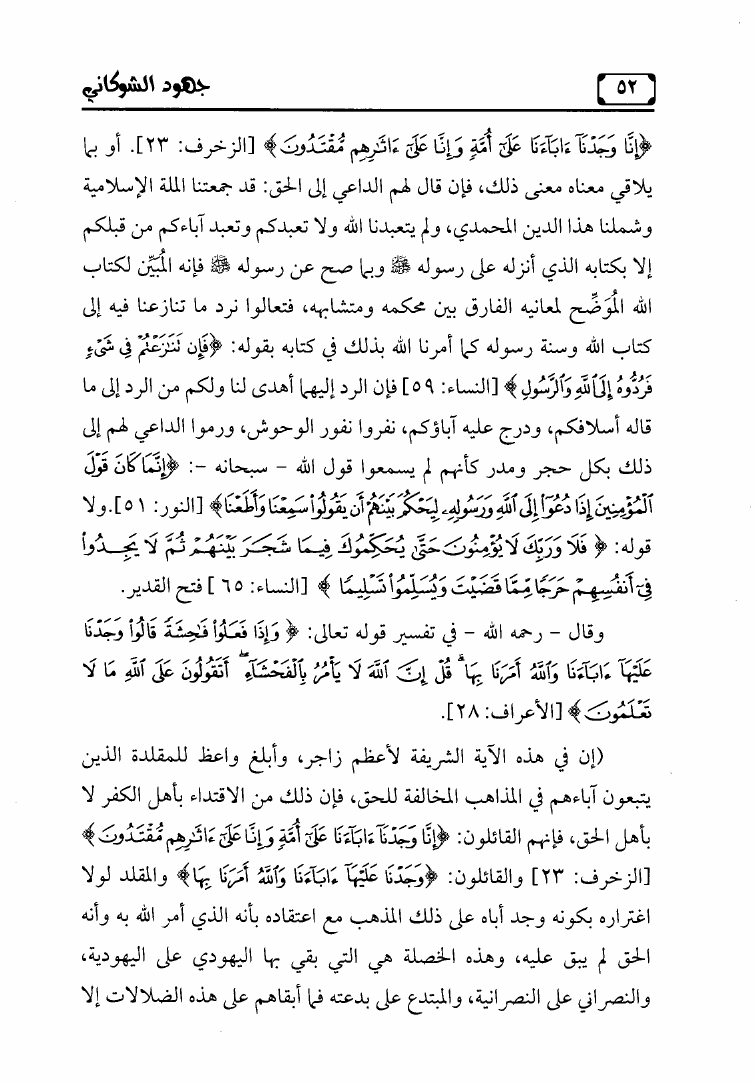 ٥٢
جهود الشوكاني
﴿إِنَّا وَجَدْنَآ ءَابَآءَنَا عَلَىٰٓ أُمَّةٍ وَإِنَّا عَلَىٰٓ ءَاثَٰرِهِم مُّقْتَدُونَ﴾ [الزخرف: ٢٣]. أو بما
يلاقي معناه معنى ذلك، فإن قال لهم الداعي إلى الحق: قد جمعتنا الملة الإسلامية
وشملنا هذا الدين المحمدي، ولم يتعبدنا الله ولا تعبدكم وتعبد آباءكم من قبلكم
إلا بكتابه الذي أنزله على رسوله ﷺ وبما صح عن رسوله ﷺ فإنه المُبَيِّن لكتاب
الله المُوَضِّح لمعانيه الفارق بين محكمه ومتشابهه، فتعالوا نرد ما تنازعنا فيه إلى
كتاب الله وسنة رسوله كما أمرنا الله بذلك في كتابه بقوله: ﴿فَإِن تَنَٰزَعْتُمْ فِى شَىْءٍ
فَرُدُّوهُ إِلَى ٱللَّهِ وَٱلرَّسُولِ﴾ [النساء: ٥٩] فإن الرد إليهما أهدى لنا ولكم من الرد إلى ما
قاله أسلافكم، ودرج عليه آباؤكم، نفروا نفور الوحوش، ورموا الداعي لهم إلى
ذلك بكل حجر ومدر كأنهم لم يسمعوا قول الله - سبحانه -: ﴿إِنَّمَا كَانَ قَوْلَ
ٱلْمُؤْمِنِينَ إِذَا دُعُوٓا۟ إِلَى ٱللَّهِ وَرَسُولِهِۦ لِيَحْكُمَ بَيْنَهُمْ أَن يَقُولُوا۟ سَمِعْنَا وَأَطَعْنَا﴾ [النور: ٥١]. ولا
قوله: ﴿ فَلَا وَرَبِّكَ لَا يُؤْمِنُونَ حَتَّىٰ يُحَكِّمُوكَ فِيمَا شَجَرَ بَيْنَهُمْ ثُمَّ لَا يَجِدُوا۟
فِىٓ أَنفُسِهِمْ حَرَجًا مِّمَّا قَضَيْتَ وَيُسَلِّمُوا۟ تَسْلِيمًا ﴾ [النساء: ٦٥ ] فتح القدير.
وقال - رحمه الله - في تفسير قوله تعالى: ﴿ وَإِذَا فَعَلُوا۟ فَٰحِشَةً قَالُوا۟ وَجَدْنَا
عَلَيْهَآ ءَابَآءَنَا وَٱللَّهُ أَمَرَنَا بِهَا ۗ قُلْ إِنَّ ٱللَّهَ لَا يَأْمُرُ بِٱلْفَحْشَآءِ ۖ أَتَقُولُونَ عَلَى ٱللَّهِ مَا لَا
تَعْلَمُونَ﴾ [الأعراف: ٢٨].
(إن في هذه الآية الشريفة لأعظم زاجر، وأبلغ واعظ للمقلدة الذين
يتبعون آباءهم في المذاهب المخالفة للحق، فإن ذلك من الاقتداء بأهل الكفر لا
بأهل الحق، فإنهم القائلون: ﴿إِنَّا وَجَدْنَآ ءَابَآءَنَا عَلَىٰٓ أُمَّةٍ وَإِنَّا عَلَىٰٓ ءَاثَٰرِهِم مُّقْتَدُونَ﴾
[الزخرف: ٢٣] والقائلون: ﴿وَجَدْنَا عَلَيْهَآ ءَابَآءَنَا وَٱللَّهُ أَمَرَنَا بِهَا﴾ والمقلد لولا
اغتراره بكونه وجد أباه على ذلك المذهب مع اعتقاده بأنه الذي أمر الله به وأنه
الحق لم يبق عليه، وهذه الخصلة هي التي بقي بها اليهودي على اليهودية،
والنصراني على النصرانية، والمبتدع على بدعته فما أبقاهم على هذه الضلالات إلا